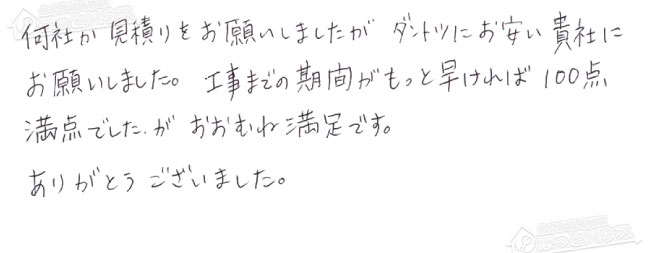 何社か見積りをお願いしましたがダントツにお安い貴社に
お願いしました。工事までの期間がもっと早ければ100点
満点でした.がおおむね満足です。
ありがとうございました。